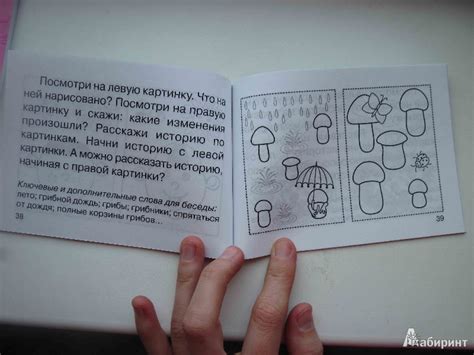 Посмотри на левую картинку. Что на
ней нарисовано? Посмотри на правую
картинку и скажи: какие изменения
произошли? Расскажи историю по
картинкам. Начни историю с левой
картинки. А можно рассказать историю,
начиная с правой картинки?
Ключевые и дополнительные слова для беседы:
лето; грибной дождь; грибы; грибники; спрятаться
от дождя; полные корзины грибов...
38
39
Лабиринт